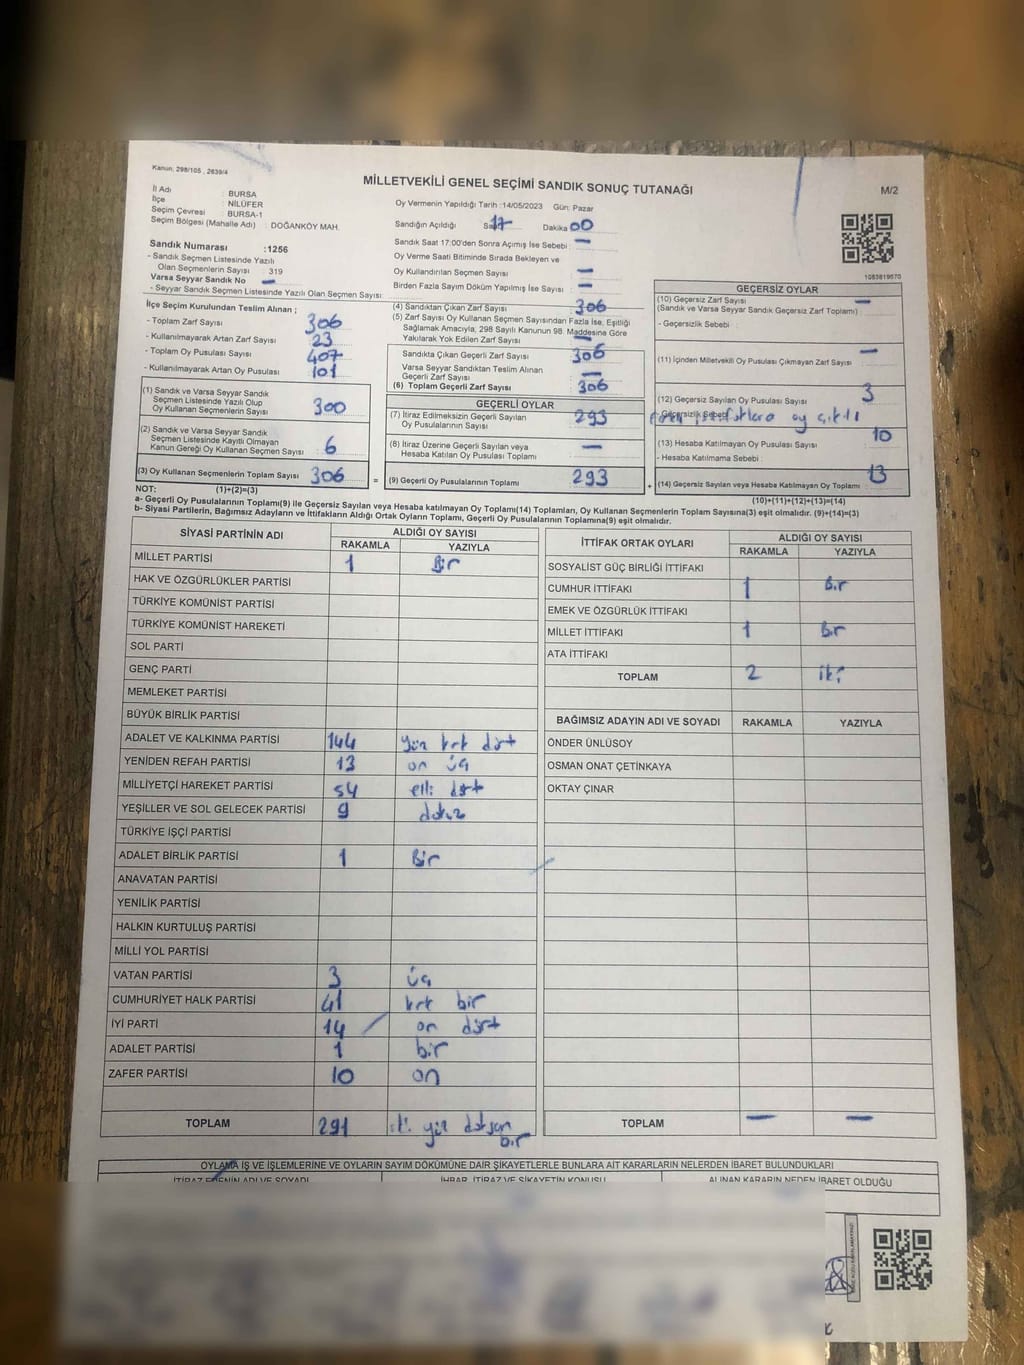 Kanun, 298/105 , 2839/4
MİLLETVEKİLİ GENEL SEÇİMİ SANDIK SONUÇ TUTANAĞI
M/2
İl Adı : BURSA
İlçe : NİLÜFER
Seçim Çevresi : BURSA-1
Seçim Bölgesi (Mahalle Adı) : DOĞANKÖY MAH.
Sandık Numarası :1256
- Sandık Seçmen Listesinde Yazılı
Olan Seçmenlerin Sayısı : 319
Varsa Seyyar Sandık No —
- Seyyar Sandık Seçmen Listesinde Yazılı Olan Seçmen Sayısı:
Oy Vermenin Yapıldığı Tarih :14/05/2023 Gün: Pazar
Sandığın Açıldığı Saat 17 Dakika 00
Sandık Saat 17:00'den Sonra Açımış İse Sebebi : —
Oy Verme Saati Bitiminde Sırada Bekleyen ve
Oy Kullandırılan Seçmen Sayısı —
Birden Fazla Sayım Döküm Yapılmış İse Sayısı : —
1083819670
İlçe Seçim Kurulundan Teslim Alınan ;
- Toplam Zarf Sayısı : 306
- Kullanılmayarak Artan Zarf Sayısı : 23
- Toplam Oy Pusulası Sayısı : 407
- Kullanılmayarak Artan Oy Pusulası : 101
(1) Sandık ve Varsa Seyyar Sandık
Seçmen Listesinde Yazılı Olup
Oy Kullanan Seçmenlerin Sayısı : 300
(2) Sandık ve Varsa Seyyar Sandık
Seçmen Listesinde Kayıtlı Olmayan
Kanun Gereği Oy Kullanan Seçmen Sayısı : 6
(3) Oy Kullanan Seçmenlerin Toplam Sayısı : 306
(4) Sandıktan Çıkan Zarf Sayısı : 306
(5) Zarf Sayısı Oy Kullanan Seçmen Sayısından Fazla İse, Eşitliği
Sağlamak Amacıyla, 298 Sayılı Kanunun 98. Maddesine Göre
Yakılarak Yok Edilen Zarf Sayısı : —
Sandıkta Çıkan Geçerli Zarf Sayısı : 306
Varsa Seyyar Sandıktan Teslim Alınan
Geçerli Zarf Sayısı : —
(6) Toplam Geçerli Zarf Sayısı : 306
GEÇERLİ OYLAR
(7) İtiraz Edilmeksizin Geçerli Sayılan
Oy Pusulalarının Sayısı : 293
(8) İtiraz Üzerine Geçerli Sayılan veya
Hesaba Katılan Oy Pusulası Toplamı : —
= (9) Geçerli Oy Pusulalarının Toplamı : 293
GEÇERSİZ OYLAR
(10) Geçersiz Zarf Sayısı : —
(Sandık ve Varsa Seyyar Sandık Geçersiz Zarf Toplamı)
- Geçersizlik Sebebi :
(11) İçinden Milletvekili Oy Pusulası Çıkmayan Zarf Sayısı : —
(12) Geçersiz Sayılan Oy Pusulası Sayısı : 3
- Geçersizlik Sebebi : oy çıktı
(13) Hesaba Katılmayan Oy Pusulası Sayısı : 10
- Hesaba Katılmama Sebebi :
+ (14) Geçersiz Sayılan veya Hesaba Katılmayan Oy Toplamı : 13
NOT: (1)+(2)=(3)
(10)+(11)+(12)+(13)=(14)
a- Geçerli Oy Pusulalarının Toplamı(9) ile Geçersiz Sayılan veya Hesaba katılmayan Oy Toplamı(14) Toplamları, Oy Kullanan Seçmenlerin Toplam Sayısına(3) eşit olmalıdır. (9)+(14)=(3)
b- Siyasi Partilerin, Bağımsız Adayların ve İttifakların Aldığı Ortak Oyların Toplamı, Geçerli Oy Pusulalarının Toplamına(9) eşit olmalıdır.
SİYASİ PARTİNİN ADI ALDIĞI OY SAYISI
RAKAMLA YAZIYLA
MİLLET PARTİSİ 1 Bir
HAK VE ÖZGÜRLÜKLER PARTİSİ
TÜRKİYE KOMÜNİST PARTİSİ
TÜRKİYE KOMÜNİST HAREKETİ
SOL PARTİ
GENÇ PARTİ
MEMLEKET PARTİSİ
BÜYÜK BİRLİK PARTİSİ
ADALET VE KALKINMA PARTİSİ 144 yüz kırk dört
YENİDEN REFAH PARTİSİ 13 on üç
MİLLİYETÇİ HAREKET PARTİSİ 54 elli dört
YEŞİLLER VE SOL GELECEK PARTİSİ 9 dokuz
TÜRKİYE İŞÇİ PARTİSİ
ADALET BİRLİK PARTİSİ 1 Bir
ANAVATAN PARTİSİ
YENİLİK PARTİSİ
HALKIN KURTULUŞ PARTİSİ
MİLLİ YOL PARTİSİ
VATAN PARTİSİ 3 üç
CUMHURİYET HALK PARTİSİ 41 kırk bir
İYİ PARTİ 14 on dört
ADALET PARTİSİ 1 bir
ZAFER PARTİSİ 10 on
TOPLAM 291 iki yüz doksan bir
İTTİFAK ORTAK OYLARI ALDIĞI OY SAYISI
RAKAMLA YAZIYLA
SOSYALİST GÜÇ BİRLİĞİ İTTİFAKI
CUMHUR İTTİFAKI 1 Bir
EMEK VE ÖZGÜRLÜK İTTİFAKI
MİLLET İTTİFAKI 1 Bir
ATA İTTİFAKI
TOPLAM 2 iki
BAĞIMSIZ ADAYIN ADI VE SOYADI RAKAMLA YAZIYLA
ÖNDER ÜNLÜSOY
OSMAN ONAT ÇETİNKAYA
OKTAY ÇINAR
TOPLAM — —
OYLAMA İŞ VE İŞLEMLERİNE VE OYLARIN SAYIM DÖKÜMÜNE DAİR ŞİKAYETLERLE BUNLARA AİT KARARLARIN NELERDEN İBARET BULUNDUKLARI
İTİRAZ EDENİN ADI VE SOYADI İHBAR, İTİRAZ VE ŞİKAYETİN KONUSU ALINAN KARARIN NEDEN İBARET OLDUĞU